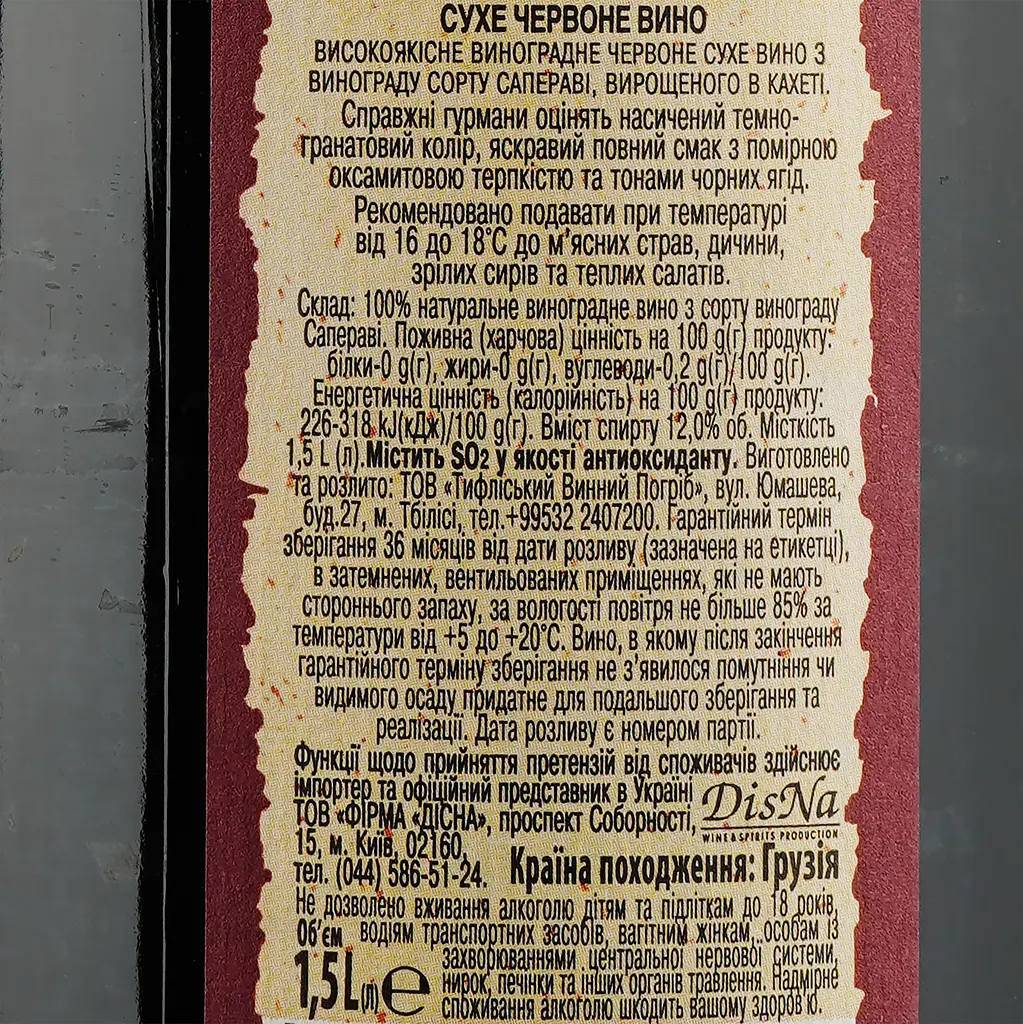 СУХЕ ЧЕРВОНЕ ВИНО
ВИСОКОЯКІСНЕ ВИНОГРАДНЕ ЧЕРВОНЕ СУХЕ ВИНО З
ВИНОГРАДУ СОРТУ САПЕРАВІ, ВИРОЩЕНОГО В КАХЕТІ.
Справжні гурмани оцінять насичений темно-
гранатовий колір, яскравий повний смак з помірною
оксамитовою терпкістю та тонами чорних ягід.
Рекомендовано подавати при температурі
від 16 до 18°С до м'ясних страв, дичини,
зрілих сирів та теплих салатів.
Склад: 100% натуральне виноградне вино з сорту винограду
Сапераві. Поживна (харчова) цінність на 100 g(г) продукту:
білки-0 g(г), жири-0 g(г), вуглеводи-0,2 g(г)/100 g(г).
Енергетична цінність (калорійність) на 100 g(г) продукту:
226-318 kJ(кДж)/100 g(г). Вміст спирту 12,0% об. Місткість
1,5 L (л).Містить SO2 у якості антиоксиданту. Виготовлено
та розлито: ТОВ «Тифліський Винний Погріб», вул. Юмашева,
буд.27, м. Тбілісі, тел.+99532 2407200. Гарантійний термін
зберігання 36 місяців від дати розливу (зазначена на етикетці),
в затемнених, вентильованих приміщеннях, які не мають
стороннього запаху, за вологості повітря не більше 85% за
температури від +5 до +20°С. Вино, в якому після закінчення
гарантійного терміну зберігання не з'явилося помутніння чи
видимого осаду придатне для подальшого зберігання та
реалізації. Дата розливу є номером партії.
Функції щодо прийняття претензій від споживачів здійснює
імпортер та офіційний представник в Україні
ТОВ «ФІРМА «ДІСНА», проспект Соборності,
15, м. Київ, 02160,
тел. (044) 586-51-24.
DisNa
WINE & SPIRITS PRODUCTION
Країна походження: Грузія
Не дозволено вживання алкоголю дітям та підліткам до 18 років,
водіям транспортних засобів, вагітним жінкам, особам із
захворюваннями центральної нервової системи,
нирок, печінки та інших органів травлення. Надмірне
споживання алкоголю шкодить вашому здоров'ю.
Об'єм
1,5 L (л) e